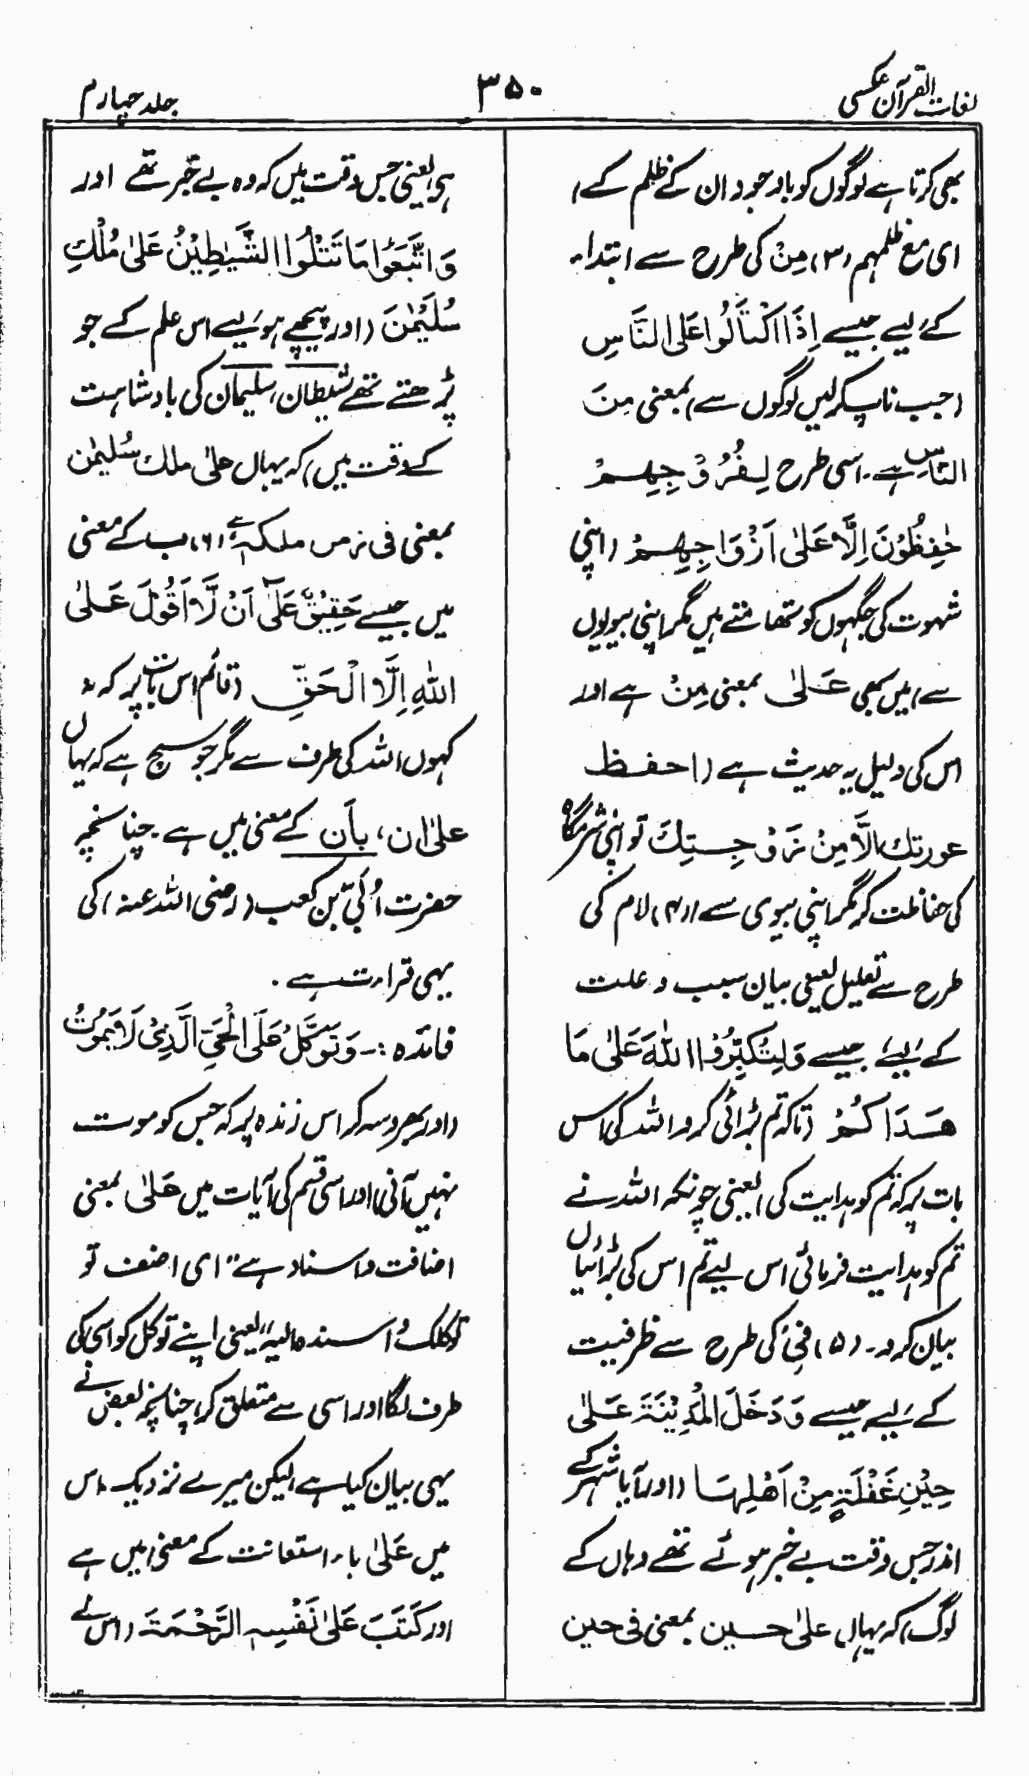 لغات القرآن عکسی
۳۵۰
جلد چہارم
بھی کرتا ہے لوگوں کو باوجود ان کے ظلم کے)
ای مع ظلمہم (۳) مِنْ کی طرح سے ابتداء
کے لیے جیسے اِذَا اكْتَالُوا عَلَى النَّاسِ
(جب ناپ کر لیں لوگوں سے) بمعنی مِنَ
النَّاسِ ہے۔ اسی طرح لِفُرُوْجِهِمْ
حٰفِظُوْنَ اِلَّا عَلٰى اَزْوَاجِهِمْ (اپنی
شہوت کی جگہوں کو تھامتے ہیں مگر اپنی بیویوں
سے) میں بھی عَلٰى بمعنی مِنْ ہے اور
اس کی دلیل یہ حدیث ہے (احفظ
عورتك الَّا مِنْ زَوْجِتِكَ تو اپنی شرمگاہ
کی حفاظت کر مگر اپنی بیوی سے) (۴) لام کی
طرح سے تعلیل یعنی بیان سبب و علت
کے لیے، جیسے وَلِتُكَبِّرُوْا اللهَ عَلٰى مَا
هَدَاكُمْ (تاکہ تم بڑائی کرو اللہ کی اس
بات پر کہ تم کو ہدایت کی) یعنی چونکہ اللہ نے
تم کو ہدایت فرمائی اس لیے تم اس کی بڑائیاں
بیان کرو۔ (۵) فِیْ کی طرح سے ظرفیت
کے لیے جیسے وَدَخَلَ الْمَدِيْنَةَ عَلٰى
حِيْنِ غَفْلَةٍ مِنْ اَهْلِهَا (اور آیا شہر کے
اندر جس وقت بے خبر ہوئے تھے وہاں کے
لوگ) کہ یہاں علیٰ حسین بمعنی فی حین
ہے یعنی جس وقت میں کہ وہ بے خبر تھے اور
وَاتَّبَعُوْا مَا تَتْلُوا الشَّيٰطِيْنُ عَلٰى مُلْكِ
سُلَيْمٰنَ (اور پیچھے ہو لیے اس علم کے جو
پڑھتے تھے شیطان، سلیمان کی بادشاہت
کے وقت میں) کہ یہاں علٰی ملك سُلیمٰن
بمعنی فی زمن ملکہ ہے (۶) ب کے معنی
میں جیسے حَقِيْقٌ عَلٰٓى اَنْ لَّا اَقُوْلَ عَلٰى
اللهِ اِلَّا الْحَقِّ (قائم اس بات پر کہ نہ
کہوں اللہ کی طرف سے مگر جو سچ ہے کہ یہاں
علٰی ان، بأن کے معنی میں ہے۔ چنانچہ
حضرت اُبَیّ بن کعب (رضی اللہ عنہ) کی
یہی قراءت ہے۔
فائدہ :۔ وَتَوَكَّلْ عَلَى الْحَيِّ الَّذِىْ لَا يَمُوْتُ
(اور بھروسہ کر اس زندہ پر کہ جس کو موت
نہیں آتی) اور اسی قسم کی آیات میں عَلٰى بمعنی
اضافت و اسناد ہے "ای اضف تو
توكلك و اسنده الیه" یعنی اپنے توکل کو اسی کی
طرف لگا اور اسی سے متعلق کر، چنانچہ بعض نے
یہی بیان کیا ہے لیکن میرے نزدیک اس
میں عَلٰى باء استعانت کے معنی میں ہے
اور كَتَبَ عَلٰى نَفْسِهِ الرَّحْمَةَ (اس نے